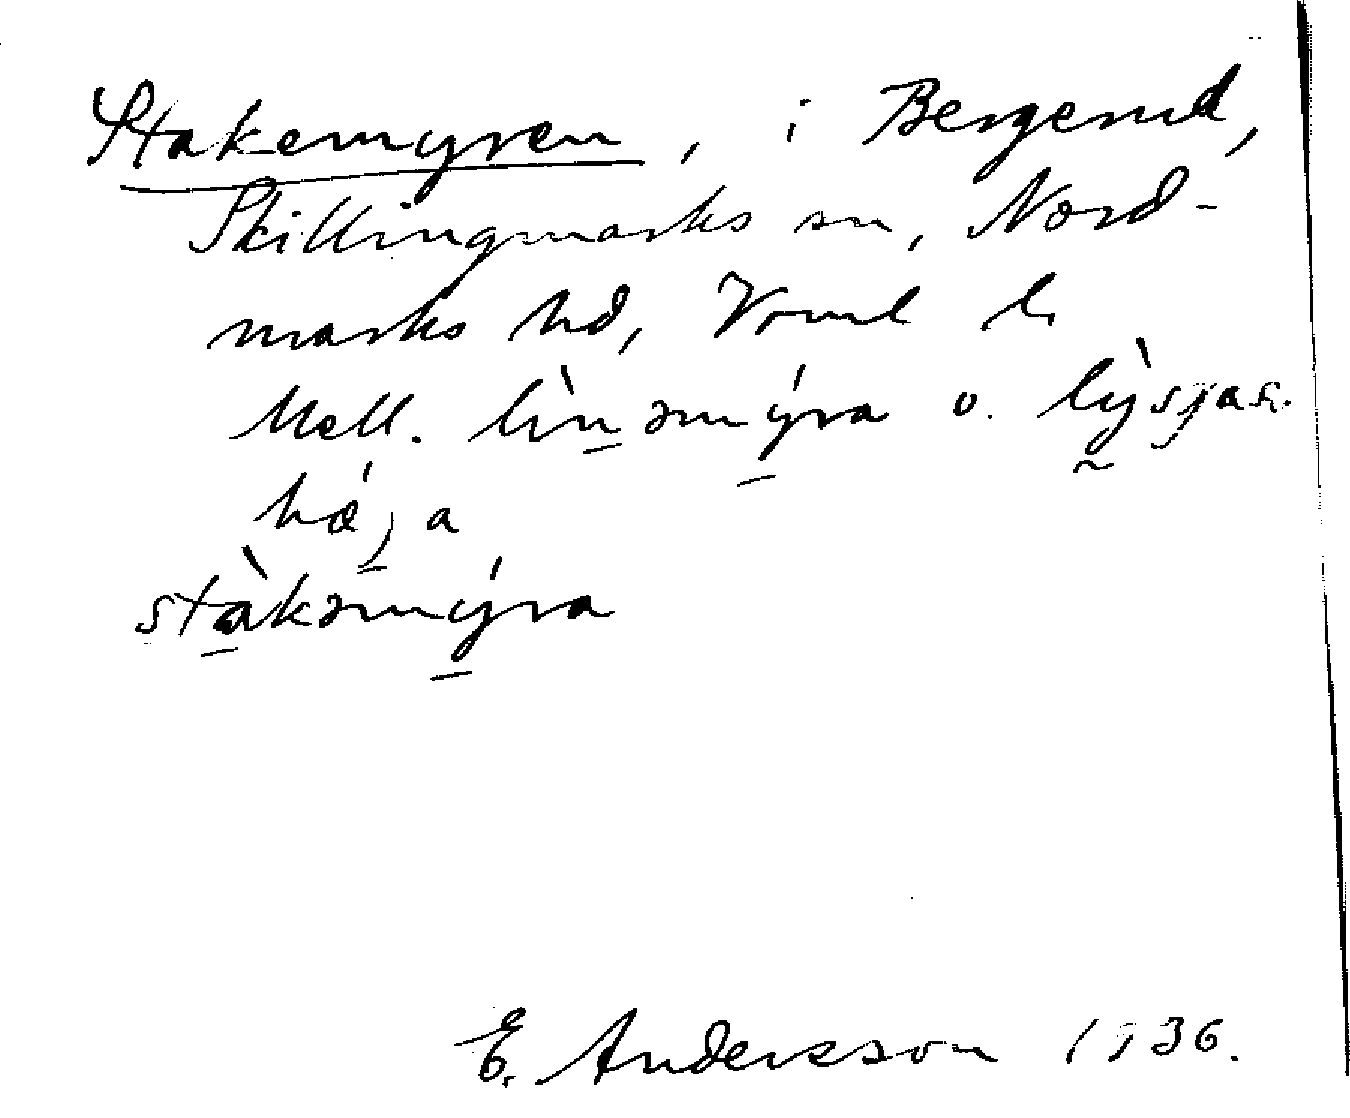 Stakemyren, i Bergerud,
Skillingmarks sn, Nord-
marks hd, Vrml l.
Mell. lìnəmýra o.
stàkəmýra
E. Andersson 1936.